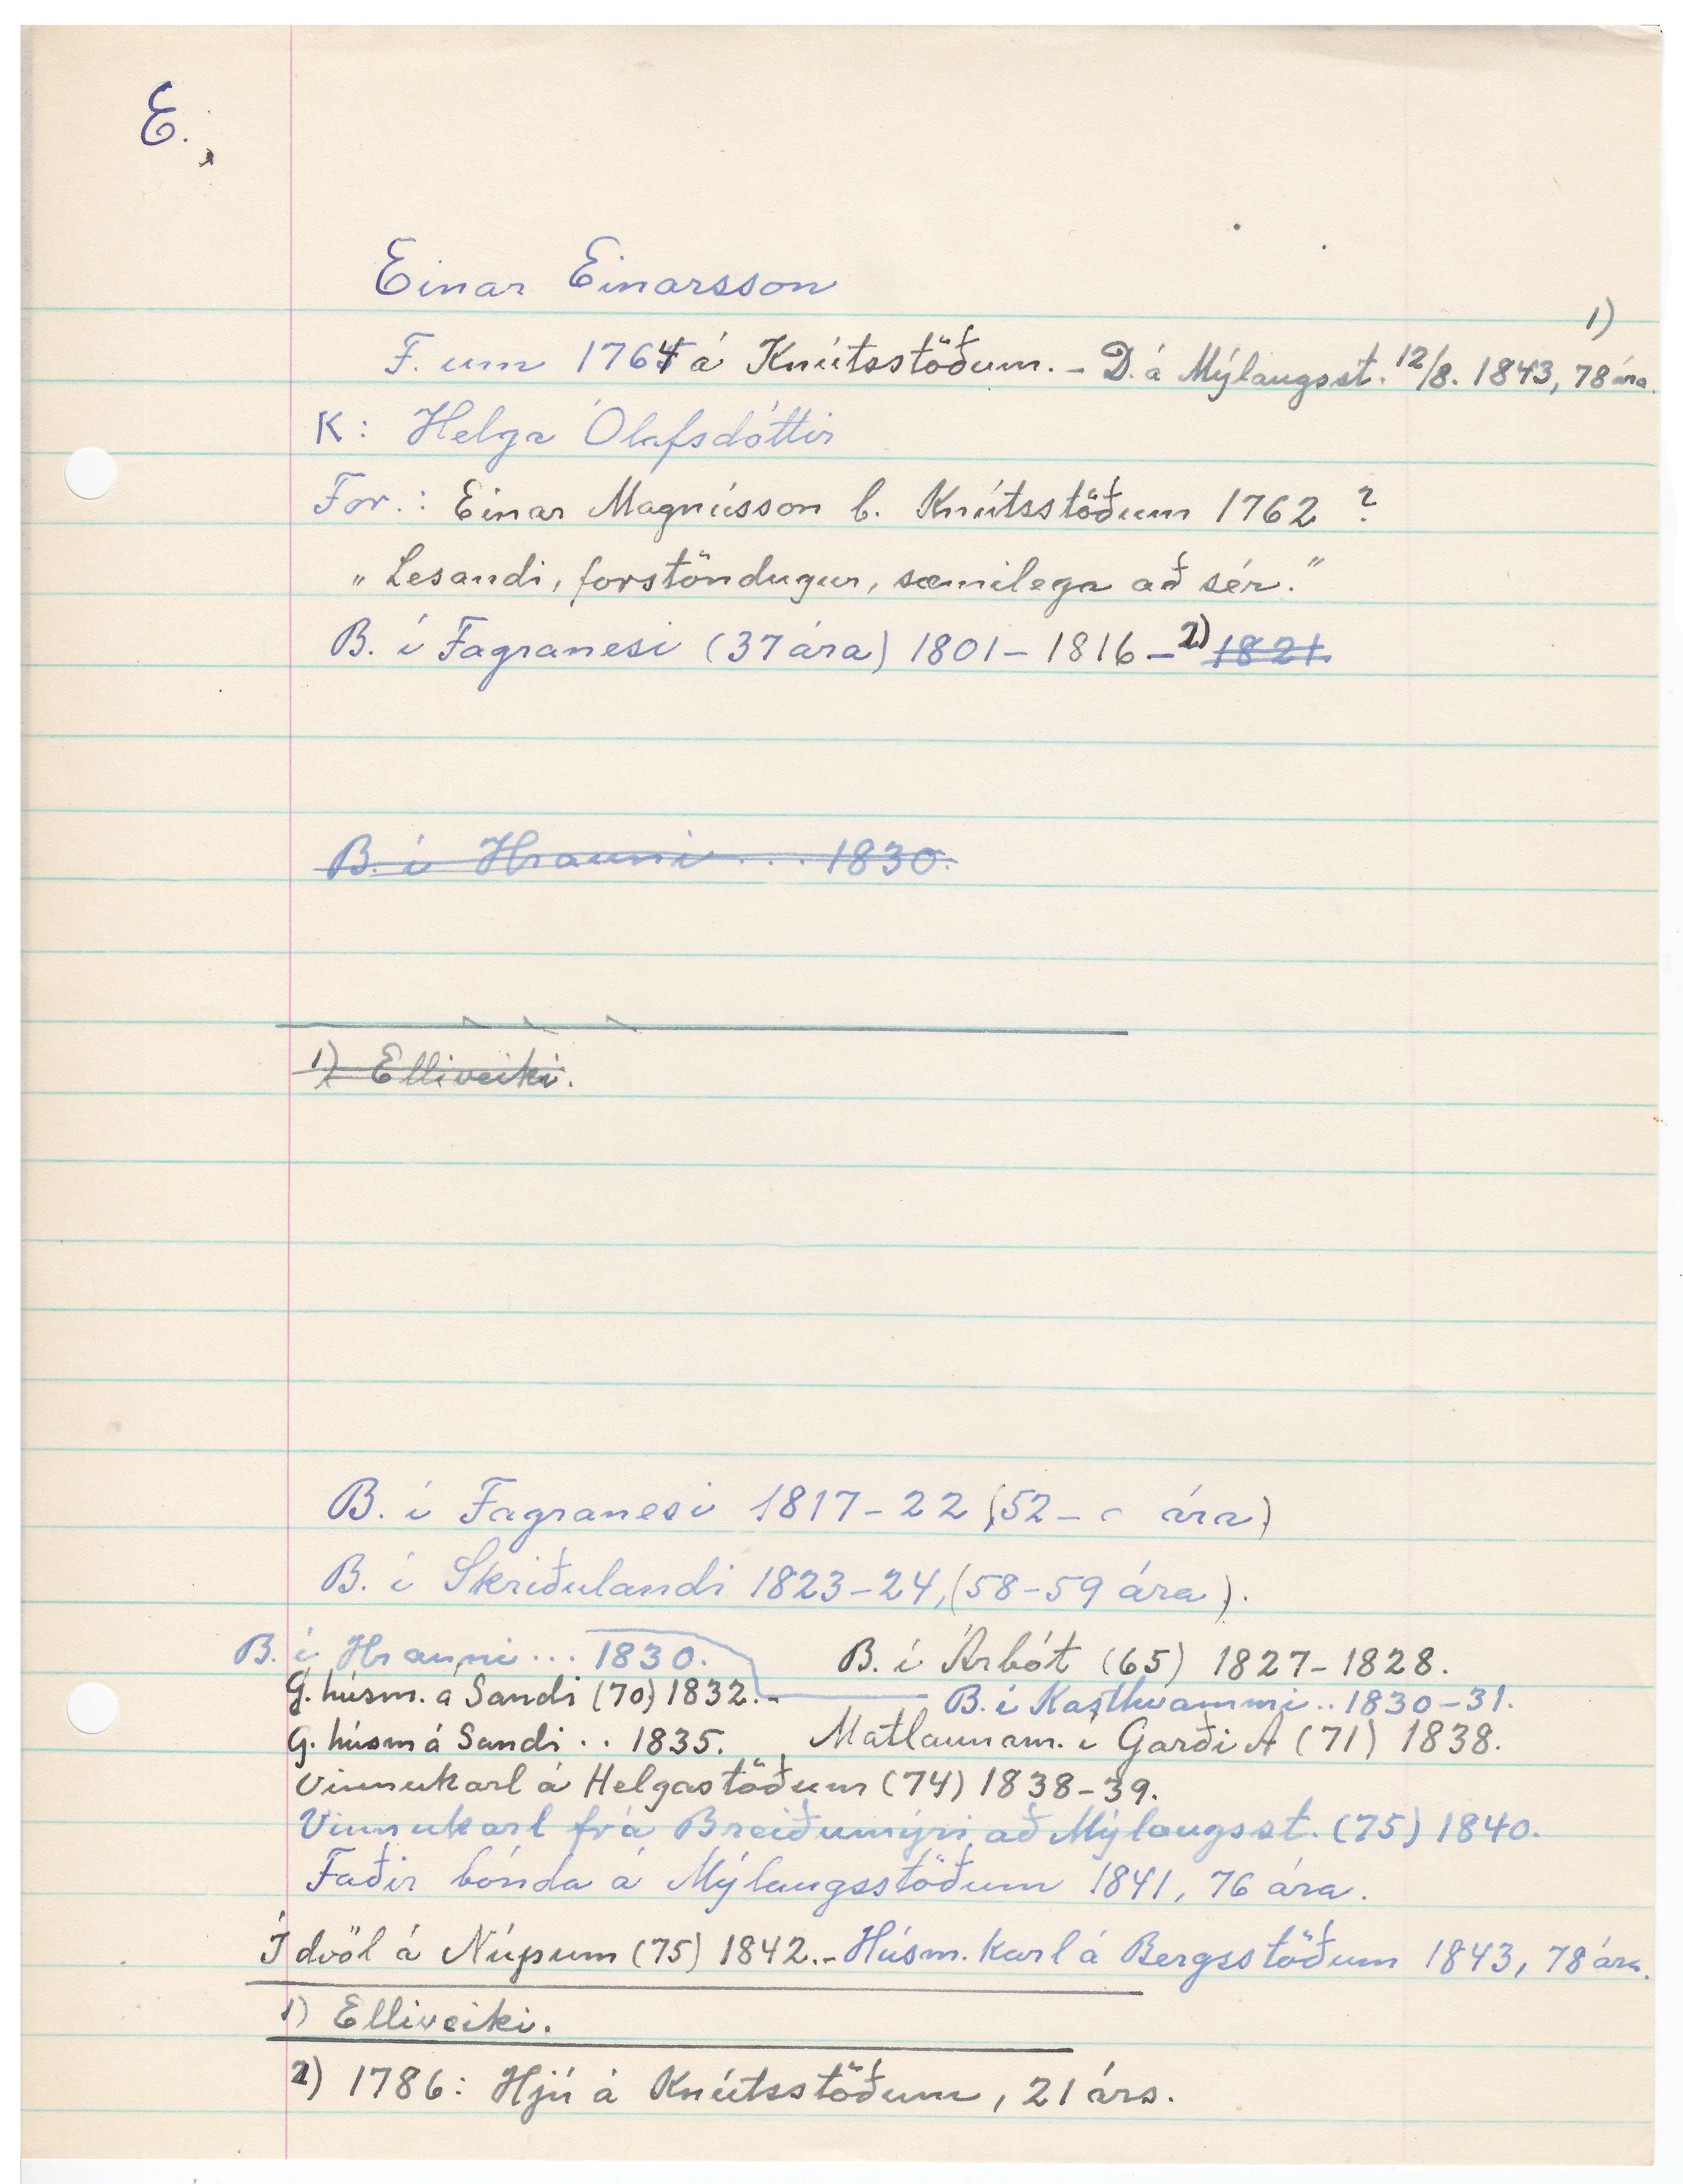 E.
Einar Einarsson
F. um 1764 á Knútsstöðum. - D. á Mýlaugsst. 12/8. 1843, 78 ára. 1)
K: Helga Ólafsdóttir
For.: Einar Magnússon b. Knútsstöðum 1762 ?
„Lesandi, forstöndugur, sæmilega að sér."
B. í Fagranesi (37 ára) 1801 - 1816 - 2) 1821.
B. í Hrauni ... 1830.
1) Elliveiki.
B. í Fagranesi 1817 - 22 (52 - ára)
B. í Skriðulandi 1823 - 24, (58 - 59 ára).
B. í Hrauni ... 1830. B. í Árbót (65) 1827 - 1828.
G. húsm. á Sandi (70) 1832. - B. í Kasthvammi .. 1830 - 31.
G. húsm á Sandi .. 1835. Matlaunam. í Garði A (71) 1838.
Vinnukarl á Helgastöðum (74) 1838 - 39.
Vinnukarl frá Breiðumýri að Mýlaugsst. (75) 1840.
Faðir bónda á Mýlaugsstöðum 1841, 76 ára.
Í dvöl á Núpum (75) 1842. - Húsm. karl á Bergsstöðum 1843, 78 ára.
1) Elliveiki.
2) 1786: Hjú á Knútsstöðum, 21 árs.